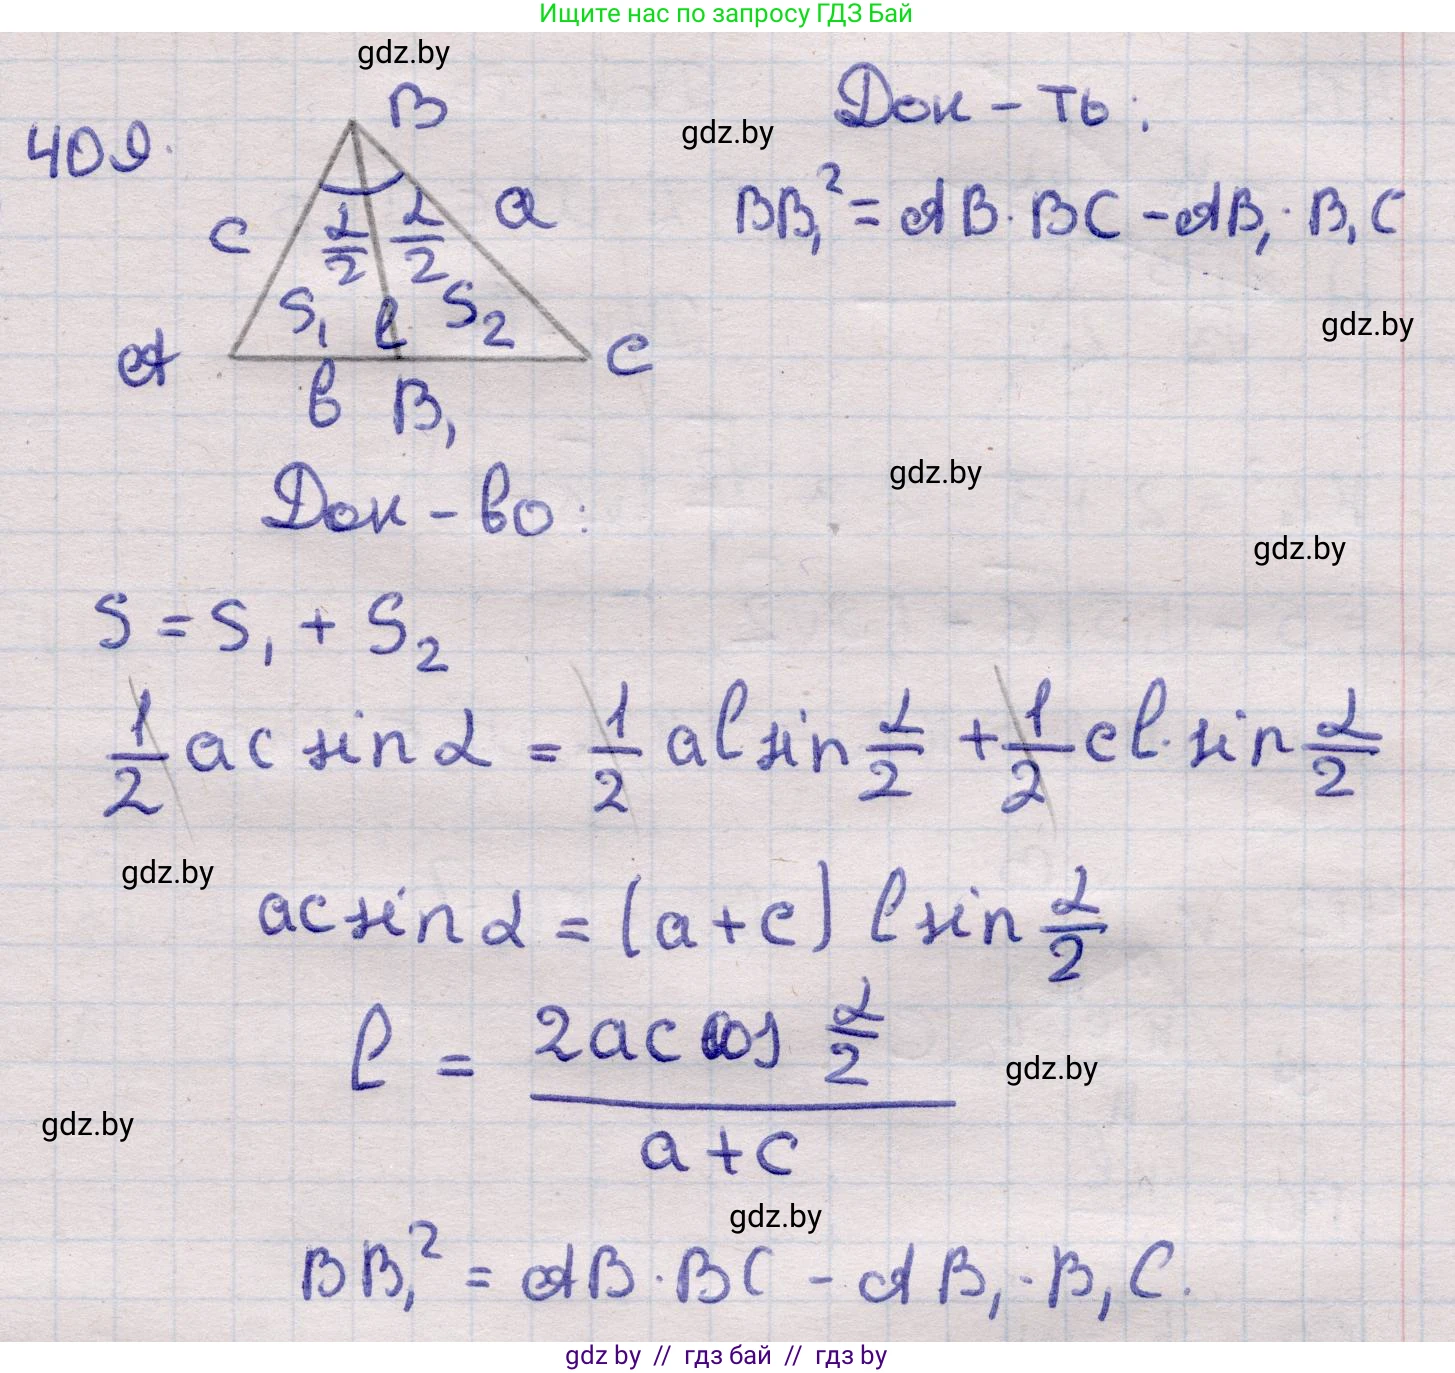 Ищите нас по запросу ГДЗ Бай
gdz.by
409.
B
Док-ть:
gdz.by
BB₁² = AB · BC - AB₁ · B₁C
c
α/2
α/2
a
S₁
l
S₂
gdz.by
A
C
b
B₁
gdz.by
Док-во:
gdz.by
S = S₁ + S₂
1/2 ac sin α = 1/2 al sin α/2 + 1/2 cl · sin α/2
gdz.by
ac sin α = (a+c) l sin α/2
l = 2ac cos α/2 / a+c
gdz.by
gdz.by
gdz.by
BB₁² = AB · BC - AB₁ · B₁C.
gdz by // гдз бай // гдз by